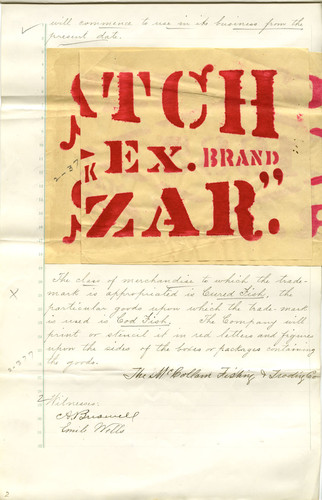 will commence to use in its business from the
present date.
TCH
Ex. BRAND
ZAR."
K
2-377
The class of merchandise to which the trade-
mark is appropriated is Cured Fish, the
particular goods upon which the trade-mark
is used is Cod Fish. The Company will
print or stencil it in red letters and figures
upon the sides of the boxes or packages containing
the goods.
The McCollam Fishing & Trading Co
2-377
Witnesses:
Emile Wells
2